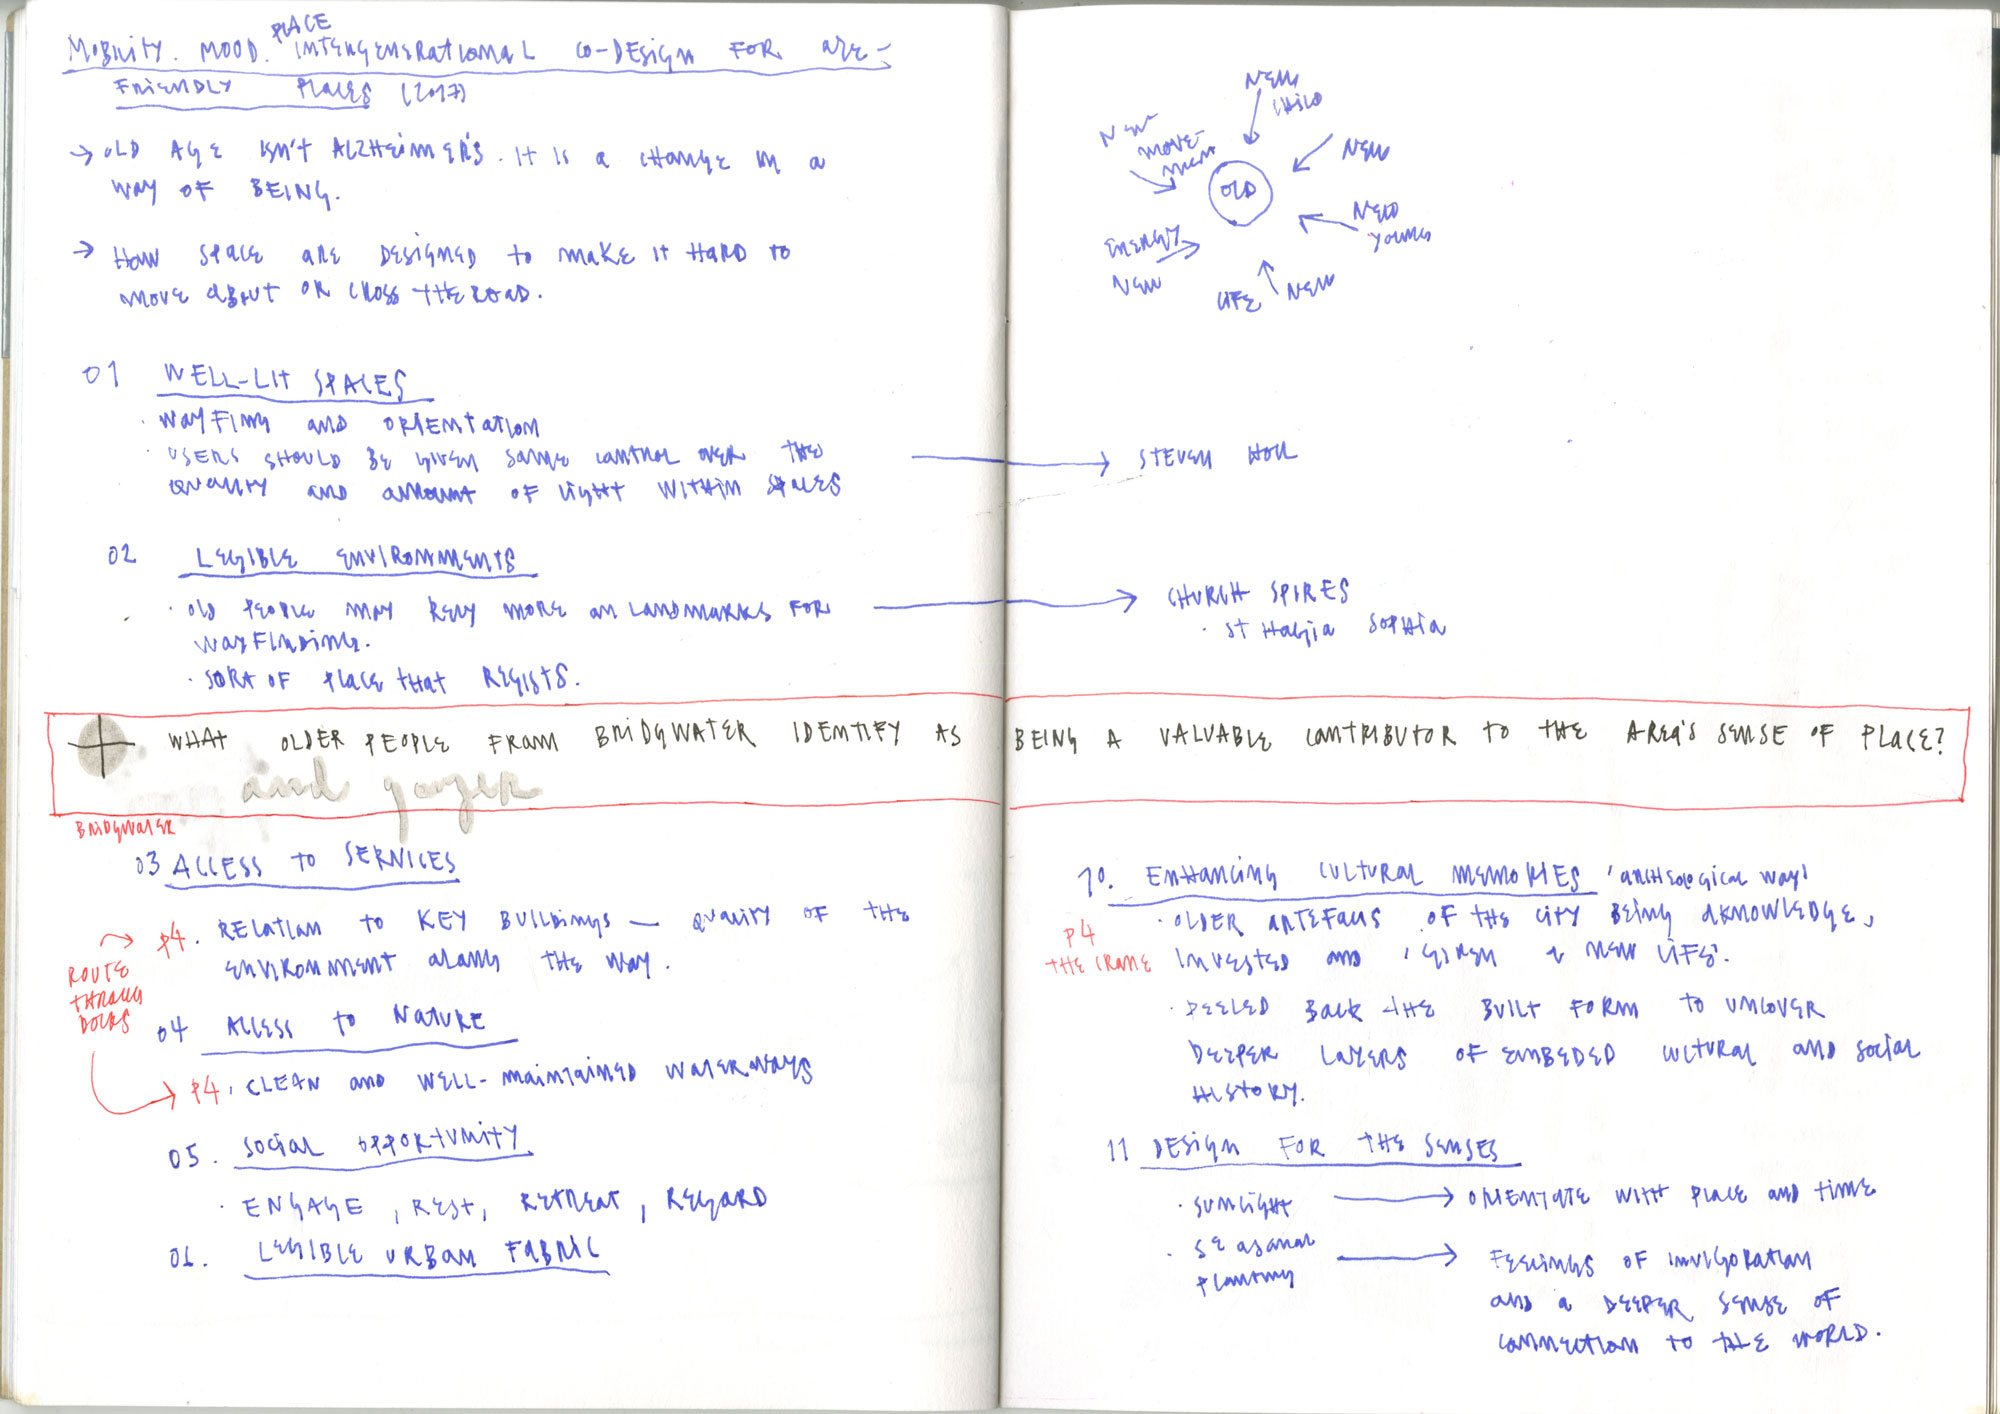 PLACE
MOBILITY. MOOD. INTERGENERATIONAL CO-DESIGN FOR AGE-
FRIENDLY PLACES (2017)
→ OLD AGE ISN'T ALZHEIMER'S. IT IS A CHANGE IN A
WAY OF BEING.
→ HOW SPACE ARE DESIGNED TO MAKE IT HARD TO
MOVE ABOUT OR CROSS THE ROAD.
01 WELL-LIT SPACES
· WAYFING AND ORIENTATION
· USERS SHOULD BE GIVEN SOME CONTROL OVER THE
QUALITY AND AMOUNT OF LIGHT WITHIN SPACES
02 LEGIBLE ENVIRONMENTS
· OLD PEOPLE MAY RELY MORE ON LANDMARKS FOR
WAYFINDING.
· SORT OF PLACE THAT REGISTS.
NEW
CHILD
NEW
MOVE-
MENT
NEW
OLD
NEW
YOUNG
ENERGY
NEW
LIFE NEW
STEVEN HOLL
CHURCH SPIRES
· ST HAGIA SOPHIA
WHAT OLDER PEOPLE FROM BRIDGWATER IDENTIFY AS BEING A VALUABLE CONTRIBUTOR TO THE AREA'S SENSE OF PLACE?
and
BRIDGEWATER
03 ACCESS TO SERVICES
P4. RELATION TO KEY BUILDINGS — QUALITY OF THE
ENVIRONMENT ALONG THE WAY.
ROUTE
THROUGH
DOCKS
04 ACCESS TO NATURE
P4. CLEAN AND WELL-MAINTAINED WATERWAYS
05. SOCIAL OPPORTUNITY
· ENGAGE, REST, RETREAT, REGARD
01. LEGIBLE URBAN FABRIC
10. ENHANCING CULTURAL MEMORIES
· OLDER ARTEFACTS OF THE CITY BEING AKNOWLEDGE,
P4
THE CRANE
INVESTED AND 'GIVEN A NEW LIFE'.
· PEELED BACK THE BUILT FORM TO UNCOVER
DEEPER LAYERS OF EMBEDED CULTURAL AND SOCIAL
HISTORY.
11 DESIGN FOR THE SENSES
· SUNLIGHT → ORIENTATE WITH PLACE AND TIME
· SEASONAL
PLANTING
→ FEELINGS OF INVIGORATION
AND A DEEPER SENSE OF
CONNECTION TO THE WORLD.